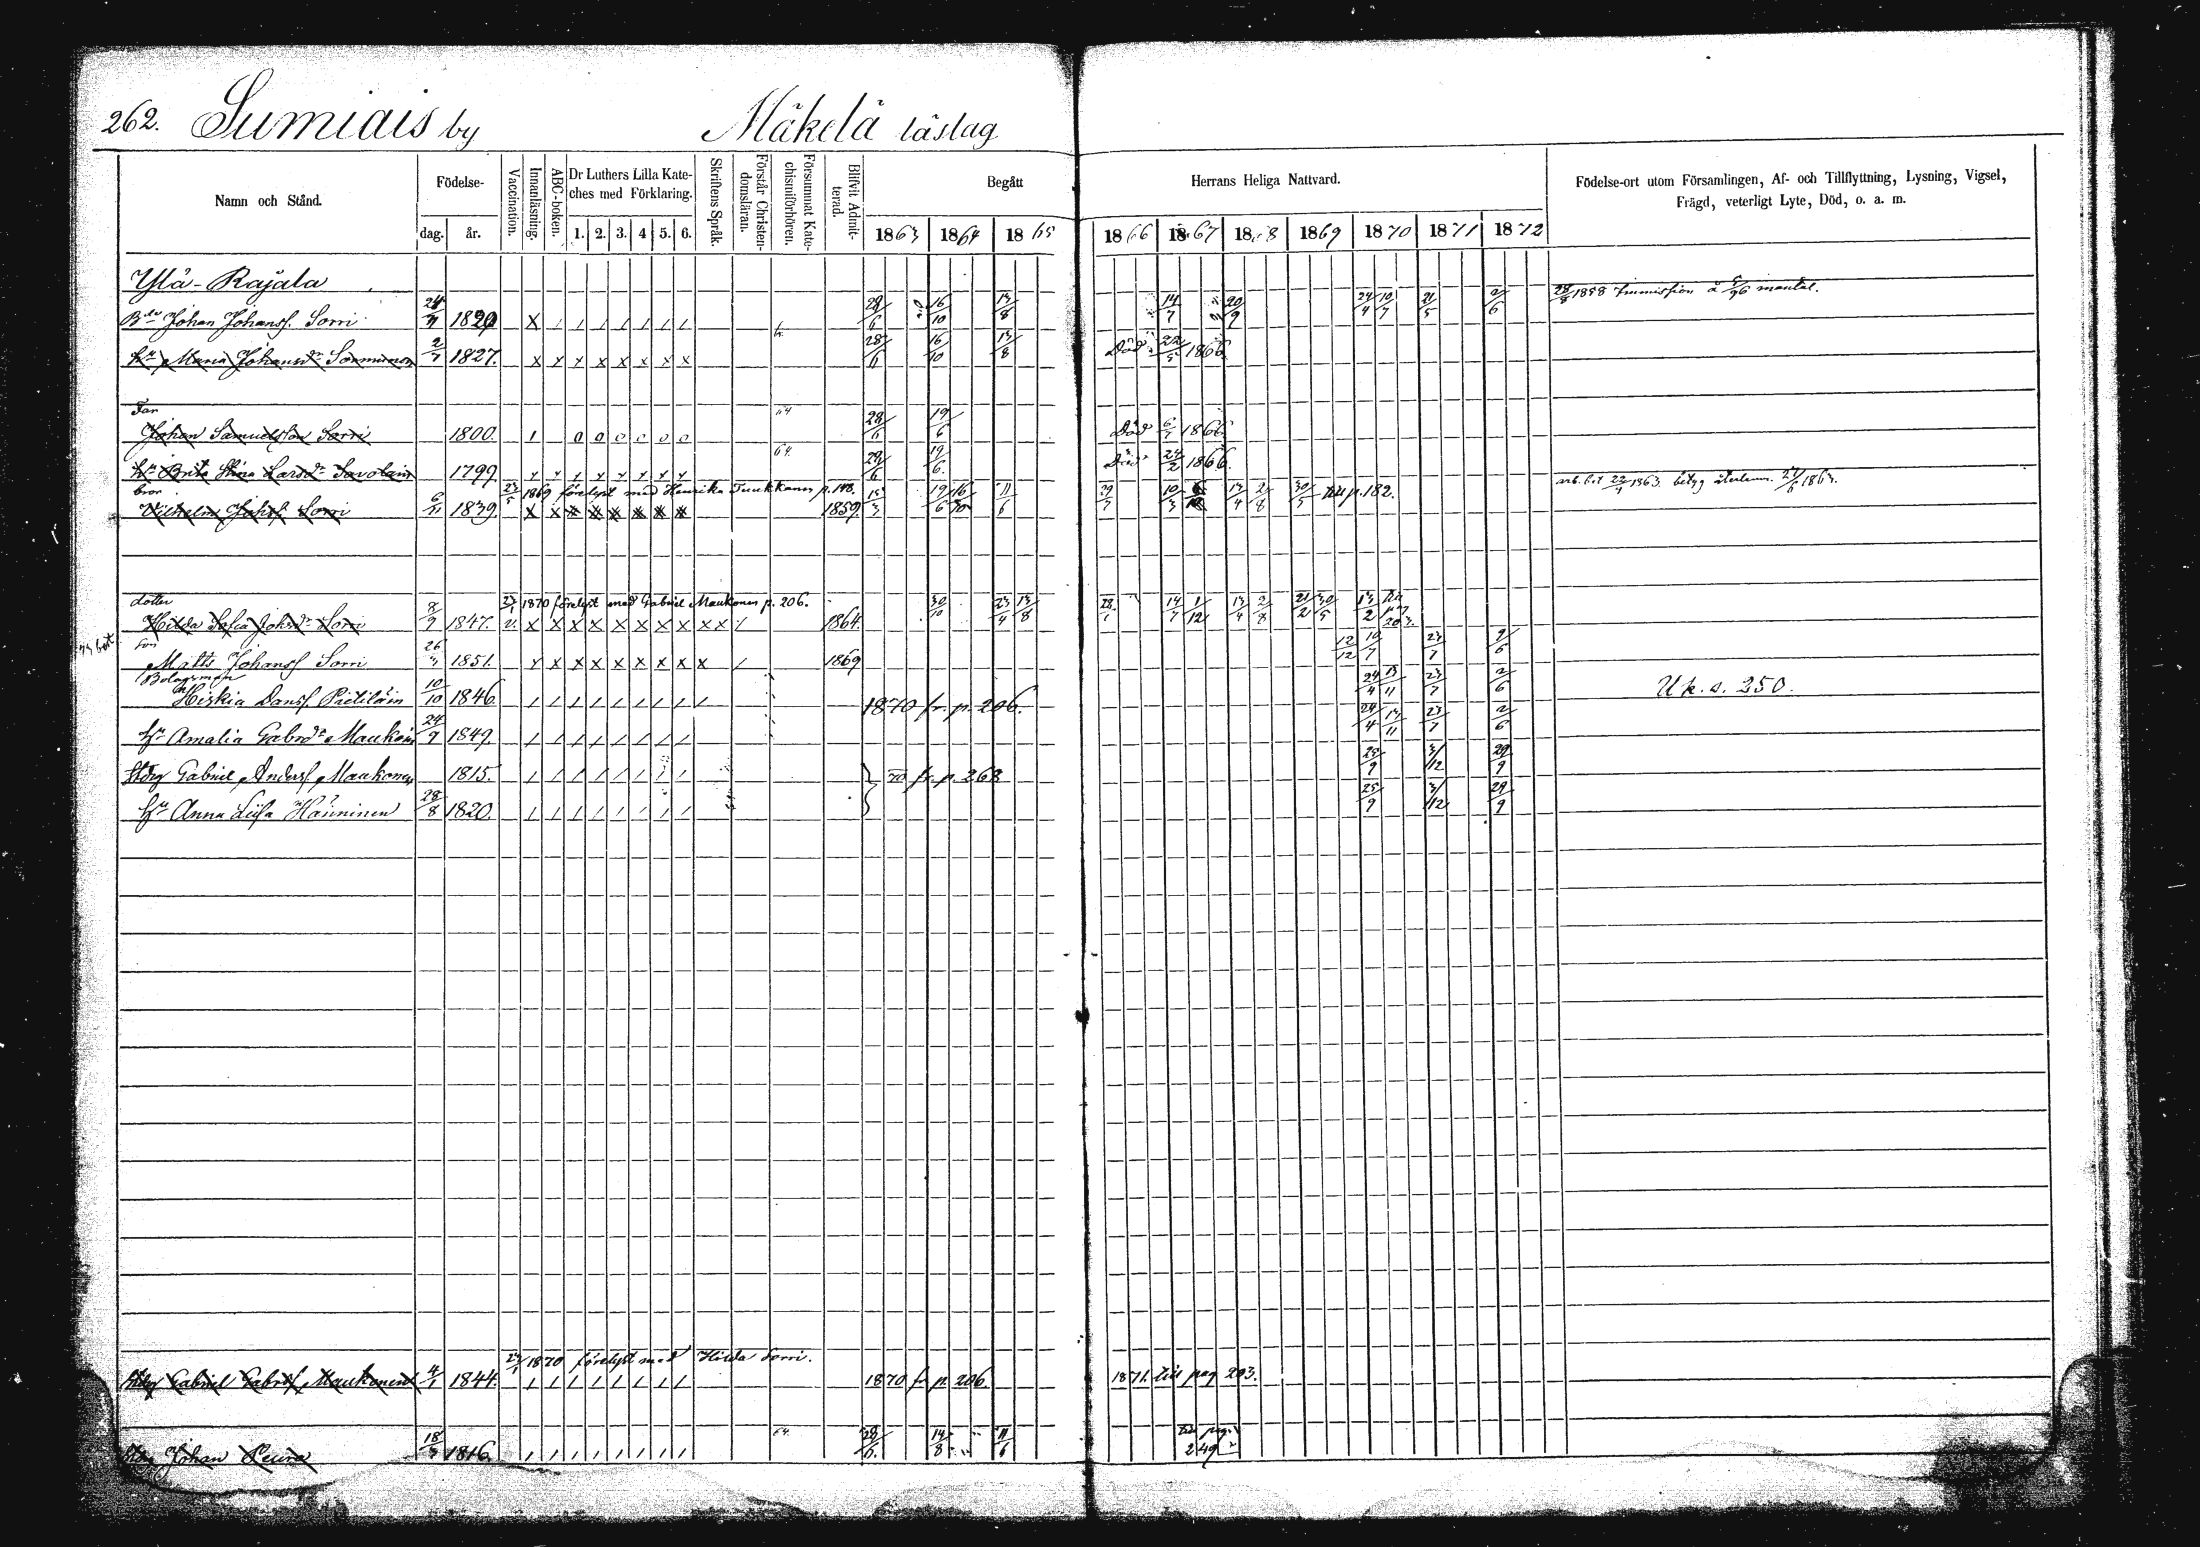 262. Sumiais by Mäkelä läslag
Namn och Stånd. Födelse- dag. år. Vaccination. Innanläsning. ABC-boken. Dr Luthers Lilla Kateches med Förklaring. 1. 2. 3. 4 5. 6. Skriftens Språk. Förstår Christendomsläran. Försummat Katechismiförhören. Blifvit Admitterad. Begått Herrans Heliga Nattvard. Födelse-ort utom Församlingen, Af- och Tillflyttning, Lysning, Vigsel, Frägd, veterligt Lyte, Död, o. a. m.
1863 1864 1865 1866 1867 1868 1869 1870 1871 1872
Ylä-Rajala
Johan Johanss. Sorri 1820 X / / / / / / / 28/6 16/10 13/8 14/7 20/9 24/4 10/7 21/5 2/6 28/8 1858 Immission å 5/96 mantal.
Maria Johansdr 2/7 1827. x x x x x x x x 28/6 16/10 13/8 Död 22/5 1866
Far
Johan Samuelsson Sorri 1800. 1 0 0 0 0 0 0 64 28/6 19/6 Död 1866
Brita Stina Larsdr Savolain 1799 64. 28/6 19/6. Död 24/2 1866.
bror 1869 förelyst med Henrika Tuukkanen p. 148.
Vilhelm Johss. Sorri 1839. 1859. 19/6 11/6 13/4 2/8 30/5 till p. 182. 1863. betyg återlemn. 1863.
dotter 1870 förelyst med Gabriel Maukonen p. 206.
Hilda Sofia Johsdr Sorri 8/9 1847. v. X X X X X X X X X X / 1864. 30/10 23/4 13/8 14/7 1/12 13/4 2/8 21/2 30/5 13/2
son
Matts Johanss Sorri 26/3 1851. x x x x x x x x x / 1869 12/12 10/7 23/7 2/6
Bolagsman
Hiskia Danss. Pietiläin 10/10 1846. / / / / / / / / / 1870 fr. p. 206. 24/4 13/11 23/7 2/6 U k. s. 250.
Hu Amalia Gabrdr Maukoin 24/9 1849. / / / / / / / / 24/4 13/11 23/7 2/6
Gabriel Anderss. Maukonen 1815. / / / / / / / / 70 fr. p. 268 25/9 3/12 29/9
Hu Anna Lisa Hänninen 28/8 1820. / / / / / / / / 25/9 3/12 29/9
1870 förelyst med Hilda Sorri.
Gabriel Gabrss. Maukonen 4/1 1844. / / / / / / / / 1870 fr p. 206. 1871. till pag 203.
Johan Leura 18/3 1816. / / / / / / / / 64. 28/6. 14/8 11/6 till pag. 249